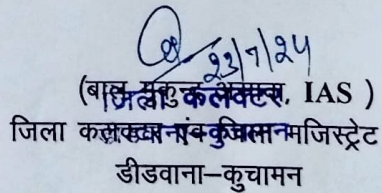 23/7/24
(बाल मुकुन्द असावा, IAS )
जिला कलक्टर
जिला कलक्टर एवं जिला मजिस्ट्रेट
डीडवाना-कुचामन
डीडवाना–कुचामन